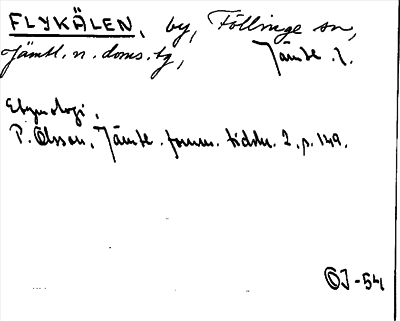 FLYKÄLEN, by, Föllinge sn,
Jämtl. n. doms. tg, Jämtl. l.
Etymologi.
P. Olsson, Jämtl. fornm. tidskr. 2, p. 149.
OJ-54